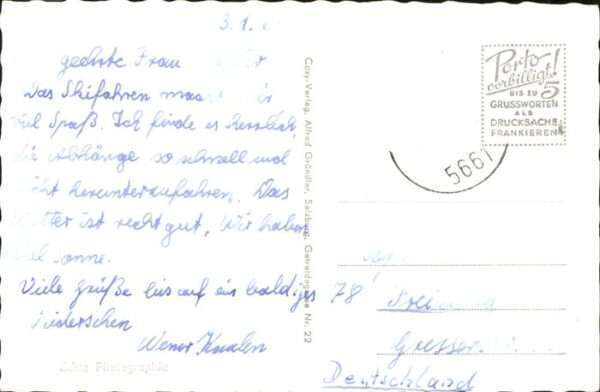 3.1.
geehrte Frau
Das Skifahren macht mir
viel Spaß. Ich finde es herrlich
die Abhänge so schnell und
leicht herunterzufahren. Das
Wetter ist recht gut, wir haben
viel Sonne.
Viele Grüße bis auf ein baldiges
Wiedersehen
Werner
Echte Photographie
Cosy-Verlag, Alfred Gründler, Salzburg, Getreidegasse Nr. 22
Porto
verbilligt!
BIS ZU 5
GRUSSWORTEN
ALS
DRUCKSACHE
FRANKIEREN
5661
78
Deutschland